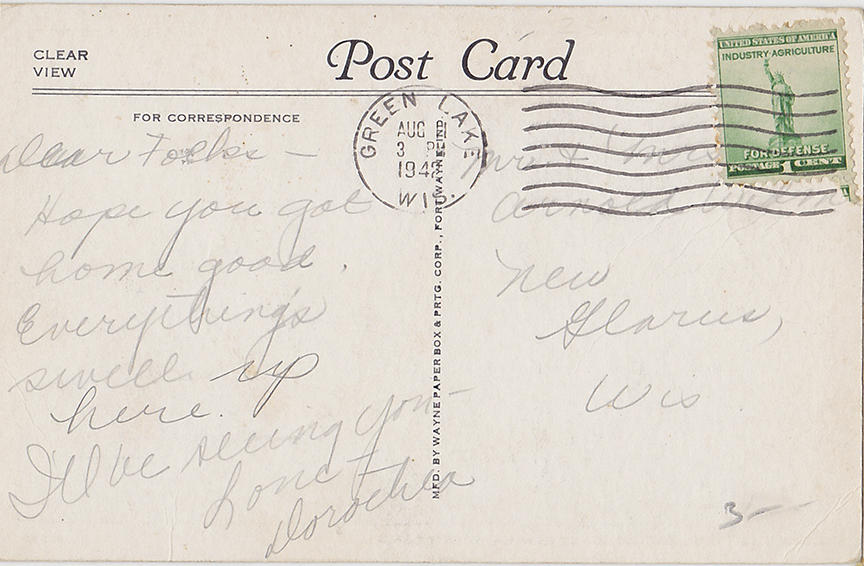 CLEAR
VIEW
Post Card
FOR CORRESPONDENCE
GREEN LAKE
AUG
3 P
194
WIS.
UNITED STATES OF AMERICA
INDUSTRY·AGRICULTURE
FOR DEFENSE
POSTAGE 1 CENT
Dear Folks –
Hope you got
home good.
Everything's
swell up
here.
I'll be seeing you –
Love –
Dorothea
MFD. BY WAYNE PAPER BOX & PRTG. CORP., FORT WAYNE, IND.
Mr. & Mrs
Arnold
New
Glarus,
Wis
3 –